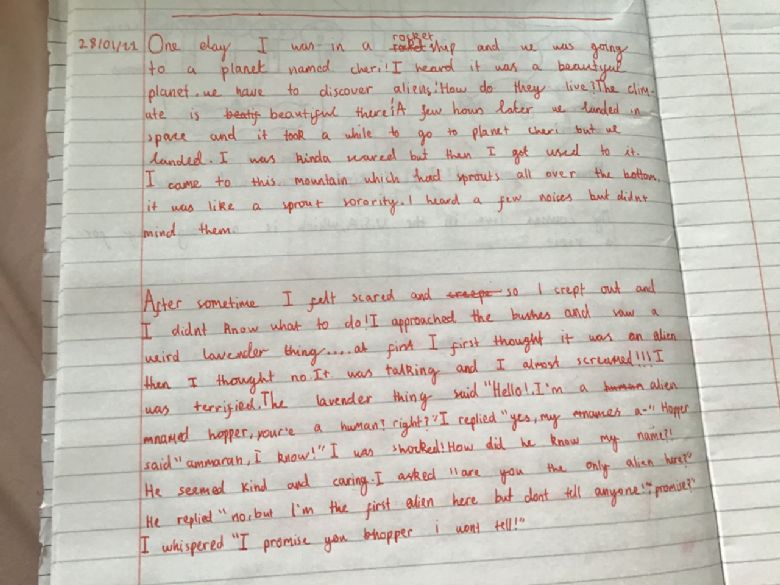 28/01/22 One day I was in a rocket ship and we was going
to a planet named cheri! I heard it was a beautyful
planet. we have to discover aliens! How do they live? The clim-
ate is beautiful there! A few hours later we landed in
space and it took a while to go to planet cheri but we
landed. I was kinda scared but then I got used to it.
I came to this mountain which had sprouts all over the bottom.
it was like a sprout sorority. I heard a few noises but didnt
mind them
After sometime I felt scared and creepe so I crept out and
I didnt know what to do! I approached the bushes and saw a
weird lavender thing.....at first I first thought it was an alien
then I thought no. It was talking and I almost screamed!!! I
was terrified. The lavender thing said "Hello!, I'm a human alien
mnamed hopper, your'e a human? right?" I replied "yes, my mnames a-" Hopper
said "ammarah, I know!" I was shocked! How did he know my name?!
He seemed kind and caring. I asked "are you the only alien here?"
He replied "no, but I'm the first alien here but dont tell anyone! promise?"
I whispered "I promise you bhopper i wont tell!"